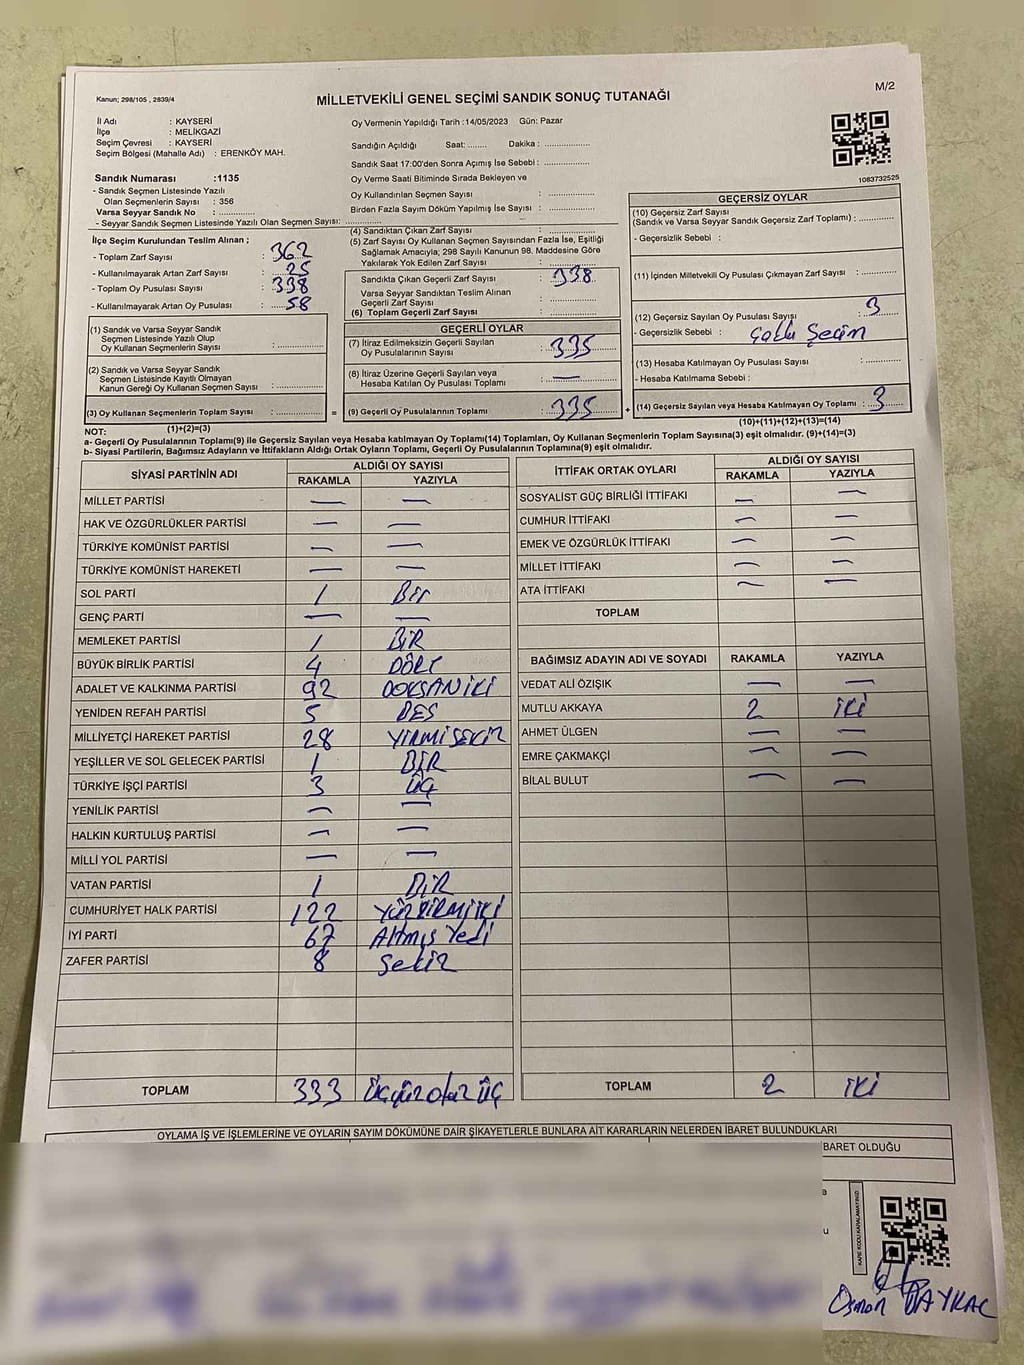 Kanun; 298/105 , 2839/4
MİLLETVEKİLİ GENEL SEÇİMİ SANDIK SONUÇ TUTANAĞI
M/2
İl Adı : KAYSERİ
İlçe : MELİKGAZİ
Seçim Çevresi : KAYSERİ
Seçim Bölgesi (Mahalle Adı) : ERENKÖY MAH.
Sandık Numarası :1135
- Sandık Seçmen Listesinde Yazılı
Olan Seçmenlerin Sayısı : 356
Varsa Seyyar Sandık No : ..............
- Seyyar Sandık Seçmen Listesinde Yazılı Olan Seçmen Sayısı: ..............
İlçe Seçim Kurulundan Teslim Alınan ;
- Toplam Zarf Sayısı : 362
- Kullanılmayarak Artan Zarf Sayısı : 25
- Toplam Oy Pusulası Sayısı : 338
- Kullanılmayarak Artan Oy Pusulası : 58
(1) Sandık ve Varsa Seyyar Sandık
Seçmen Listesinde Yazılı Olup
Oy Kullanan Seçmenlerin Sayısı : ..............
(2) Sandık ve Varsa Seyyar Sandık
Seçmen Listesinde Kayıtlı Olmayan
Kanun Gereği Oy Kullanan Seçmen Sayısı : ..............
(3) Oy Kullanan Seçmenlerin Toplam Sayısı : .............. =
(1)+(2)=(3)
Oy Vermenin Yapıldığı Tarih :14/05/2023 Gün: Pazar
Sandığın Açıldığı Saat: ....... Dakika : ..............
Sandık Saat 17:00'den Sonra Açımış İse Sebebi : ..............
Oy Verme Saati Bitiminde Sırada Bekleyen ve
Oy Kullandırılan Seçmen Sayısı : ..............
Birden Fazla Sayım Döküm Yapılmış İse Sayısı : ..............
(4) Sandıktan Çıkan Zarf Sayısı : ..............
(5) Zarf Sayısı Oy Kullanan Seçmen Sayısından Fazla İse, Eşitliği
Sağlamak Amacıyla; 298 Sayılı Kanunun 98. Maddesine Göre
Yakılarak Yok Edilen Zarf Sayısı : ..............
Sandıkta Çıkan Geçerli Zarf Sayısı : 338
Varsa Seyyar Sandıktan Teslim Alınan
Geçerli Zarf Sayısı : ..............
(6) Toplam Geçerli Zarf Sayısı : ..............
GEÇERLİ OYLAR
(7) İtiraz Edilmeksizin Geçerli Sayılan
Oy Pusulalarının Sayısı : 335
(8) İtiraz Üzerine Geçerli Sayılan veya
Hesaba Katılan Oy Pusulası Toplamı : —
(9) Geçerli Oy Pusulalarının Toplamı : 335 +
1083732525
GEÇERSİZ OYLAR
(10) Geçersiz Zarf Sayısı
(Sandık ve Varsa Seyyar Sandık Geçersiz Zarf Toplamı) : ..............
- Geçersizlik Sebebi : ..............
(11) İçinden Milletvekili Oy Pusulası Çıkmayan Zarf Sayısı : ..............
(12) Geçersiz Sayılan Oy Pusulası Sayısı : 3
- Geçersizlik Sebebi : Çoklu Seçim
(13) Hesaba Katılmayan Oy Pusulası Sayısı : ..............
- Hesaba Katılmama Sebebi :
(14) Geçersiz Sayılan veya Hesaba Katılmayan Oy Toplamı : 3
(10)+(11)+(12)+(13)=(14)
NOT:
a- Geçerli Oy Pusulalarının Toplamı(9) ile Geçersiz Sayılan veya Hesaba katılmayan Oy Toplamı(14) Toplamları, Oy Kullanan Seçmenlerin Toplam Sayısına(3) eşit olmalıdır. (9)+(14)=(3)
b- Siyasi Partilerin, Bağımsız Adayların ve İttifakların Aldığı Ortak Oyların Toplamı, Geçerli Oy Pusulalarının Toplamına(9) eşit olmalıdır.
SİYASİ PARTİNİN ADI ALDIĞI OY SAYISI
RAKAMLA YAZIYLA
MİLLET PARTİSİ — —
HAK VE ÖZGÜRLÜKLER PARTİSİ — —
TÜRKİYE KOMÜNİST PARTİSİ — —
TÜRKİYE KOMÜNİST HAREKETİ — —
SOL PARTİ 1 Bir
GENÇ PARTİ — —
MEMLEKET PARTİSİ 1 BİR
BÜYÜK BİRLİK PARTİSİ 4 DÖRT
ADALET VE KALKINMA PARTİSİ 92 DOKSAN İKİ
YENİDEN REFAH PARTİSİ 5 BEŞ
MİLLİYETÇİ HAREKET PARTİSİ 28 YİRMİ SEKİZ
YEŞİLLER VE SOL GELECEK PARTİSİ 1 BİR
TÜRKİYE İŞÇİ PARTİSİ 3 ÜÇ
YENİLİK PARTİSİ — —
HALKIN KURTULUŞ PARTİSİ — —
MİLLİ YOL PARTİSİ — —
VATAN PARTİSİ 1 BİR
CUMHURİYET HALK PARTİSİ 122 YÜZ YİRMİ İKİ
İYİ PARTİ 67 Altmış Yedi
ZAFER PARTİSİ 8 Sekiz
TOPLAM 333 Üçyüz otuz ÜÇ
İTTİFAK ORTAK OYLARI ALDIĞI OY SAYISI
RAKAMLA YAZIYLA
SOSYALİST GÜÇ BİRLİĞİ İTTİFAKI — —
CUMHUR İTTİFAKI — —
EMEK VE ÖZGÜRLÜK İTTİFAKI — —
MİLLET İTTİFAKI — —
ATA İTTİFAKI — —
TOPLAM
BAĞIMSIZ ADAYIN ADI VE SOYADI RAKAMLA YAZIYLA
VEDAT ALİ ÖZIŞIK — —
MUTLU AKKAYA 2 İKİ
AHMET ÜLGEN — —
EMRE ÇAKMAKÇİ — —
BİLAL BULUT — —
TOPLAM 2 İKİ
OYLAMA İŞ VE İŞLEMLERİNE VE OYLARIN SAYIM DÖKÜMÜNE DAİR ŞİKAYETLERLE BUNLARA AİT KARARLARIN NELERDEN İBARET BULUNDUKLARI
BARET OLDUĞU
Osman BAYKAL